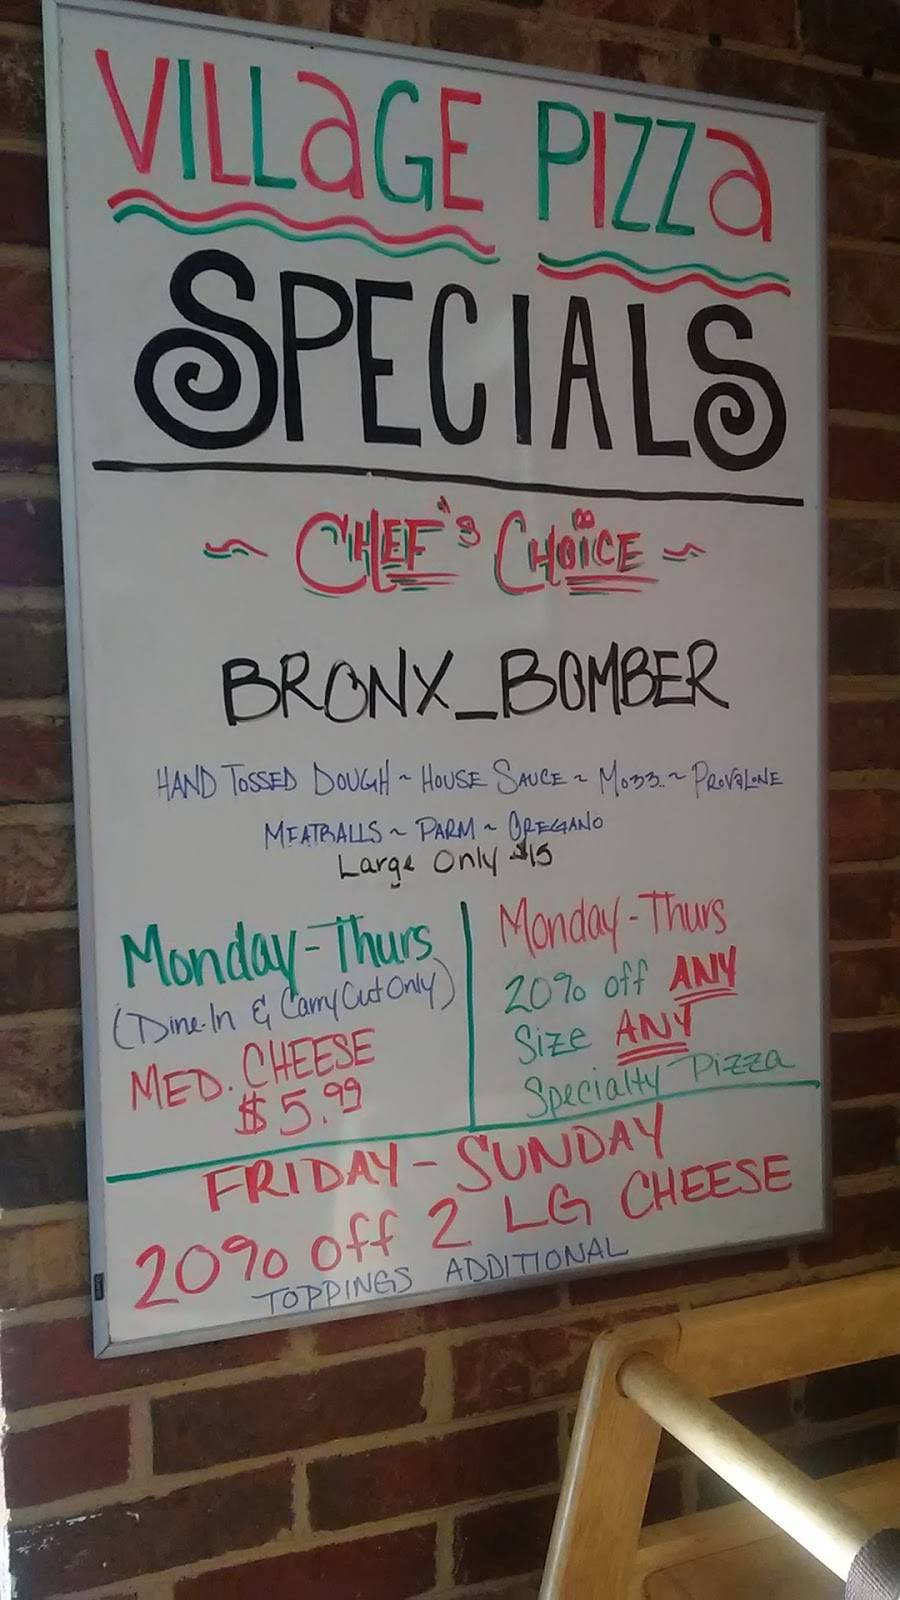 VILLaGE PIZZa
SPECIALS
~ CHEF'S CHOICE ~
BRONX_BOMBER
HAND TOSSED DOUGH ~ HOUSE SAUCE ~ MOZZ. ~ PROVALONE
MEATBALLS ~ PARM ~ OREGANO
Large Only $15
Monday-Thurs
(Dine-In & Carry Out Only)
MED. CHEESE
$5.99
Monday-Thurs
20% off ANY
Size ANY
Specialty Pizza
FRIDAY-SUNDAY
20% off 2 LG CHEESE
TOPPINGS ADDITIONAL